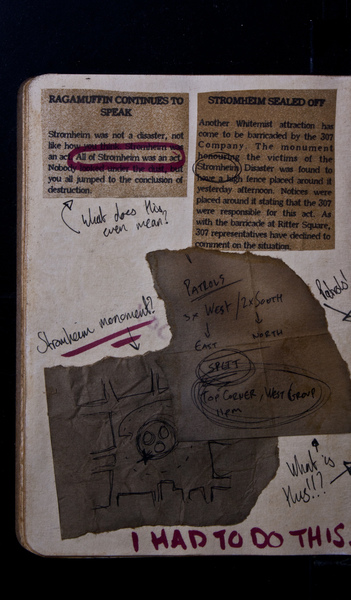 RAGAMUFFIN CONTINUES TO
SPEAK
Stromheim was not a disaster, not
like how you think. Stromheim
an act. All of Stromheim was an act.
Nobody under the dust, but
you all jumped to the conclusion of
destruction.
What does this
even mean?
STROMHEIM SEALED OFF
Another Whitemist attraction has
come to be barricaded by the 307
Company. The monument
honouring the victims of the
Stromheim Disaster was found to
have a high fence placed around it
yesterday afternoon. Notices were
placed around it stating that the 307
were responsible for this act. As
with the barricade at Ritter Square,
307 representatives have declined to
comment on the situation.
PATROLS
5x West / 2x South
EAST NORTH
SPLIT
TOP CORNER, WEST GROUP
11pm
Stromheim monument?
What is
this!!?
I HAD TO DO THIS.